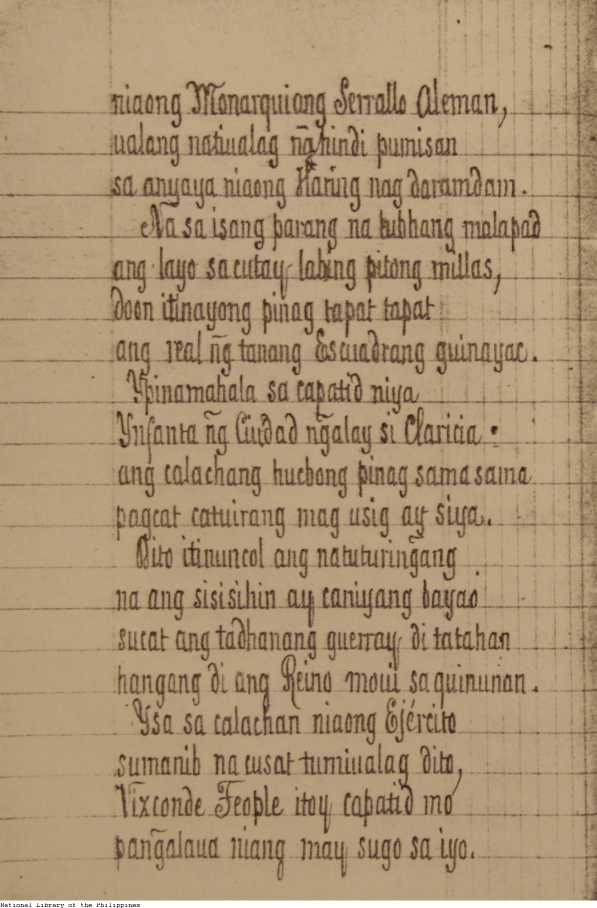 niaong Monarquiang Serrallo Aleman,
ualang natiualag ng̃ hindi pumisan
sa anyaya niaong Haring nag daramdam.
Na sa isang parang na lubhang malapad
ang layo sa cutay labing pitong millas,
doon itinayong pinag tapat tapat
ang real ñg tanang Escuadrang guinayac.
Ypinamahala sa capatid niya
Ynfanta ñg Ciudad ng̃alay si Claricia
ang calachang hucbong pinag sama sama
pagcat catuirang mag usig ay siya.
Dito itinuncol ang natuturing̃ang
na ang sisisihin ay caniyang bayao
sucat ang tadhanang guerray di tatahan
hangang di ang Reino moui sa quinunan.
Ysa sa calachan niaong Ejército
sumanib na cusat tumiualag dito,
Vixconde Feople itoy capatid mo
pang̃alaua niang may sugo sa iyo.
National Library of the Philippines